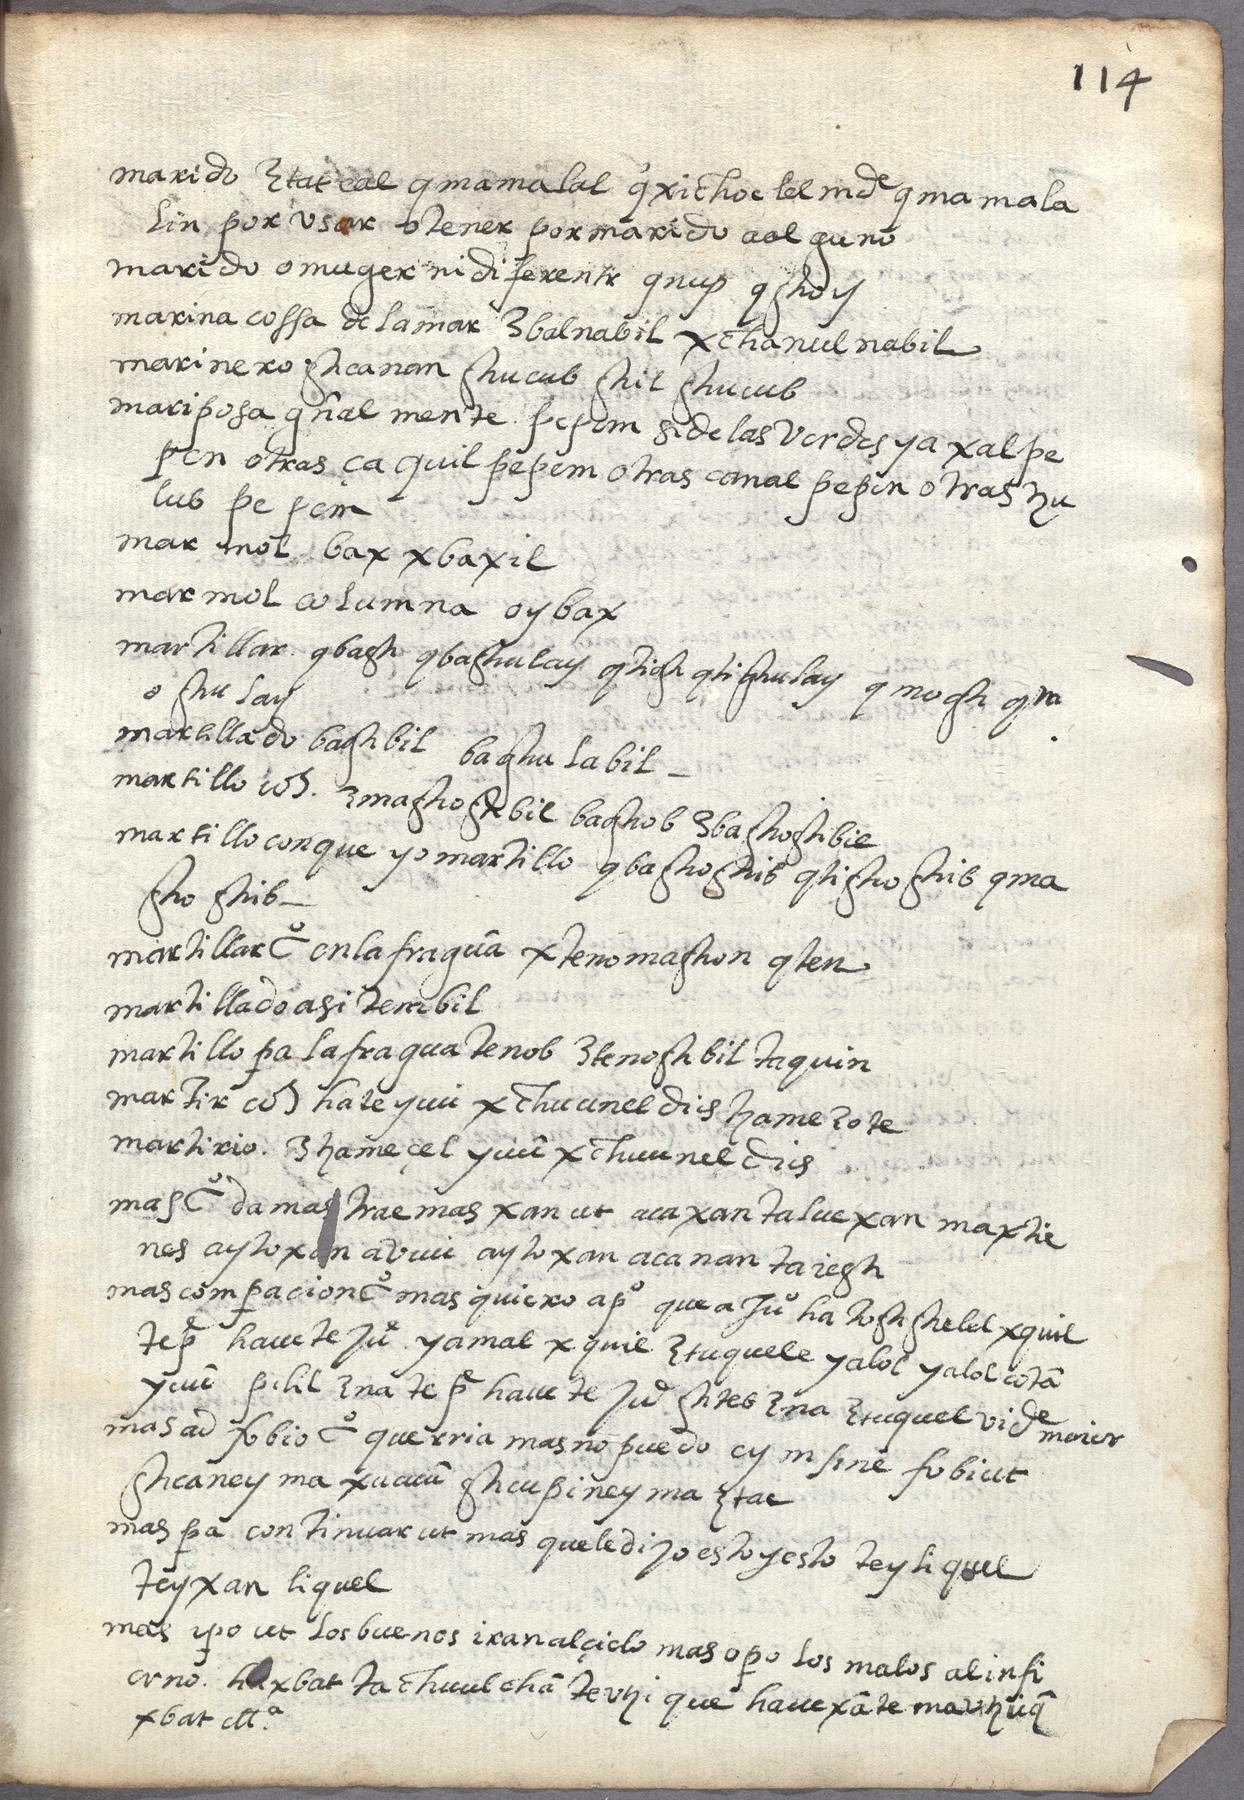 114
marido ztatcal qmamalal q̃ xichoclel mde qmamala
lin por usar o tener por marido a alguno
marido o muger nidiferentr qnup qghoy
marina cossa de la mar zbalnabil xchanulnabil
marinero ghcanan ghucub ghil ghucub
mariposa gñal mente pepem si de las verdes yaxalpe
pen otras çaquil pepem otras canal pepen otras tzu
lub pepem
marmol bax xbaxil
marmol columna oybax
martillar qbagh qbaghulay qtigh qtighulay qmogh qm
oghulay
martillado baghbil baghulabil
martillo coʒ. zmaghoghbil baghob zbaghoghbil
martillo con que yo martillo qbaghoghib qtighoghib qma
ghoghib
martillar c̃o en la fraguã xtenomaghon qten
martillado asi tenbil
martillo pa la fragua tenob ztenoghbil taquin
martir coʒ hate yuu xchuunel dios tzamezote
martirio. ztzameçel yuuñ xchuunel dios
mas c̃o da mas trae mas xan ut acaxan talucxan maxtie
nes aytoxan avuu aytoxan acanan taiegh
mas compacion c̃o mas quiero apo que a Juo hatoghghelel xquil
tepe haue te Juo yamal xquil ztuquele yalol yalol cotã
yuuñ pchil zna tepe haue te Juo ghteb zna ztuquel vide maior
mas ad fobio c̃o querria mas no puedo cy m sine fobiut
ghcaney ma xuuuñ ghcupiney ma ztac
mas pa continuar ut mas que le dijo esto y esto tey liquel
teyxan liquel
mas ipo ut los buenos iran al çielo mas opo los malos al infi
erno. haxbat ta chuul chã te utzi que hauexã te mautzuq̃
xbat ctta